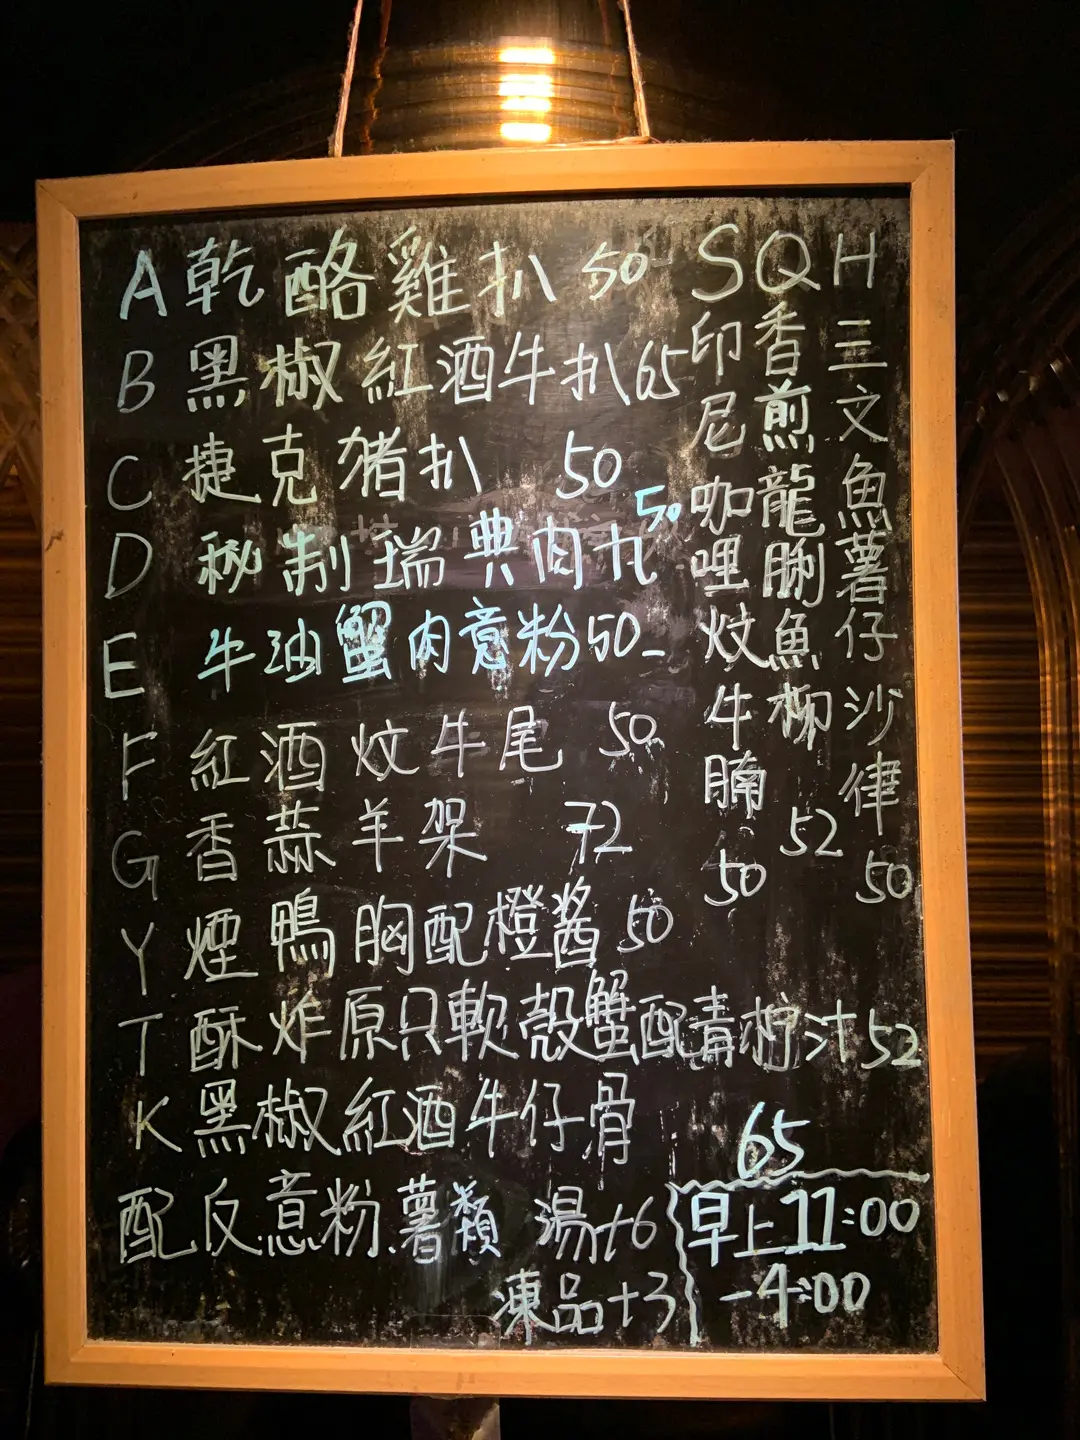 A 乾酪雞扒 50
B 黑椒紅酒牛扒 65
C 捷克豬扒 50
D 秘制瑞典肉丸 50
E 牛油蟹肉意粉 50
F 紅酒炆牛尾 50
G 香蒜羊架 72
Y 煙鴨胸配橙醬 50
T 酥炸原只軟殼蟹配青柠汁 52
K 黑椒紅酒牛仔骨 65
S 印尼咖哩炆牛腩 50
Q 香煎龍脷魚柳 52
H 三文魚薯仔沙律 50
配反.意粉.薯類 湯+6
凍品+3
早上11:00
-4:00